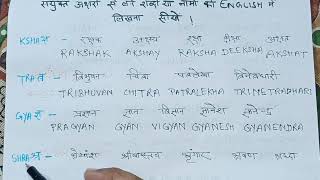 संयुक्त अक्षरों से बने शब्दों या नामों को ENGLISH में
लिखना सीखें !
KSHA क्ष रक्षक अक्षय रक्षा दीक्षा अक्षत
RAKSHAK AKSHAY RAKSHA DEEKSHA AKSHAT
TRA त्र त्रिभुवन चित्रा पत्रलेखा त्रिनेत्रधारी
TRIBHUVAN CHITRA PATRALEKHA TRINETRADHARI
GYA ज्ञ प्रज्ञान ज्ञान विज्ञान ज्ञानेश ज्ञानेन्द्र
PRAGYAN GYAN VIGYAN GYANESH GYANENDRA
SHRA श्र श्रेयांश श्रीवास्तव श्रृंगार श्रवण श्रद्धा